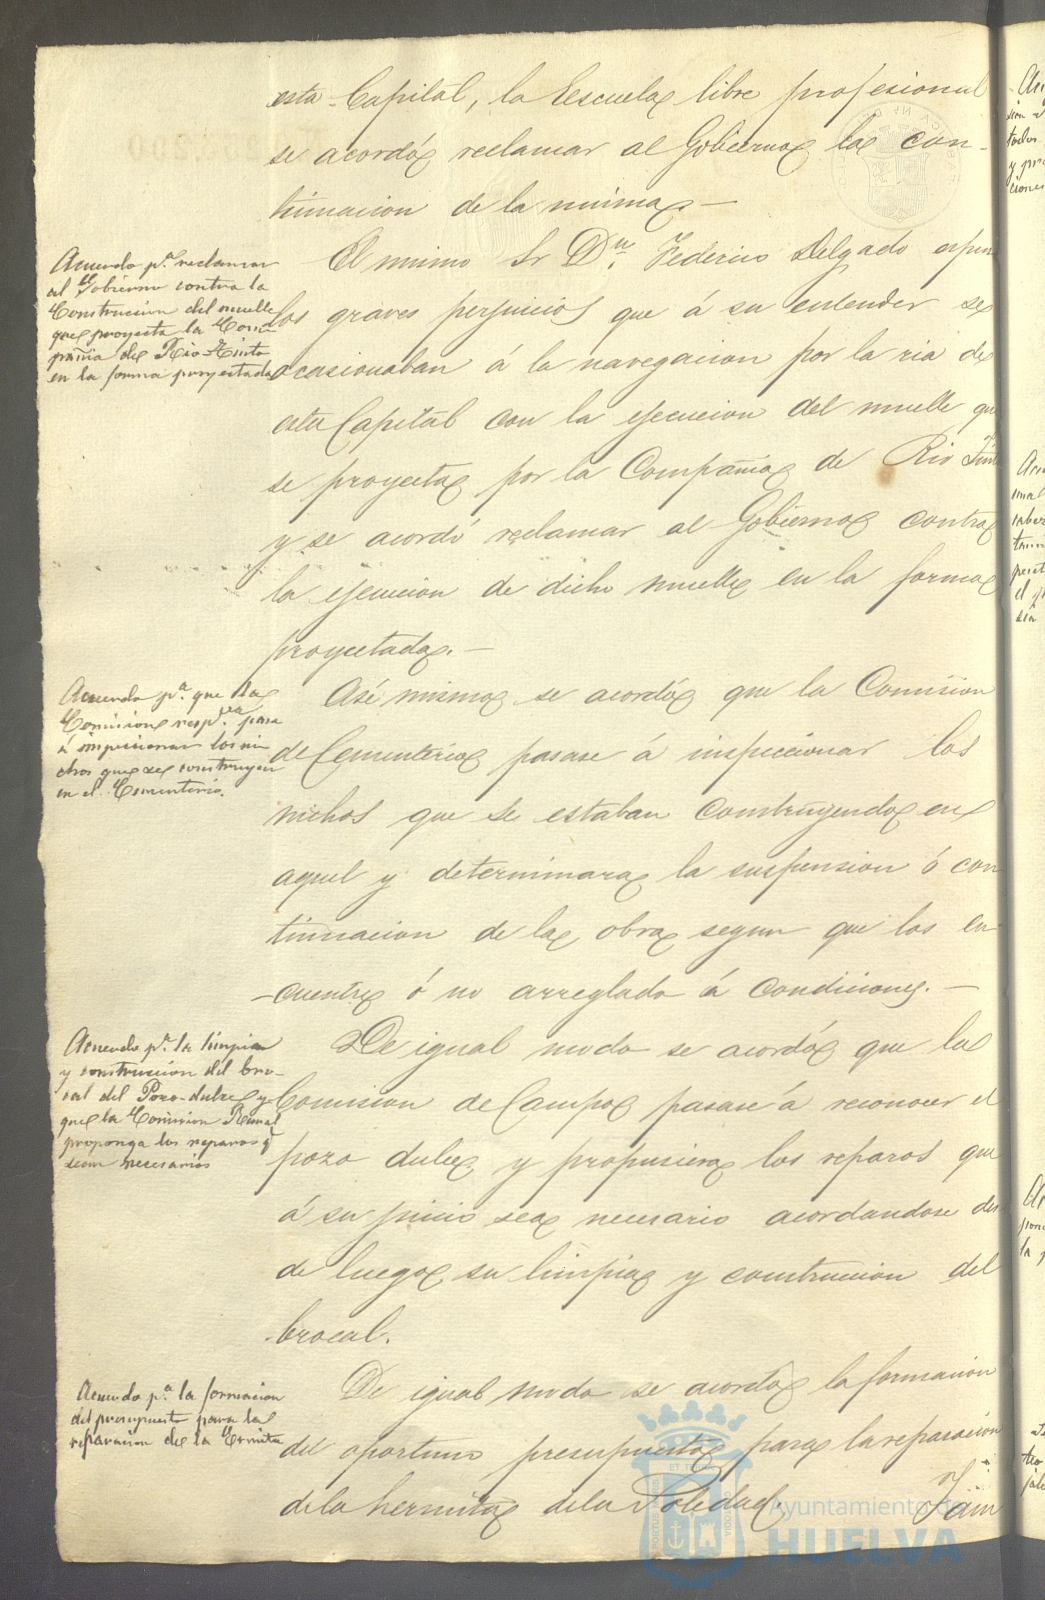 esta Capital, la Escuela libre profesional
se acordó reclamar al Gobierno la con-
tinuacion de la misma.—
Acuerdo pª reclamar
al Gobierno contra la
Construccion del muelle
que proyecta la Com-
pañia de Rio-Tinto
en la forma proyectada
El mismo Sr Dn. Federico Delgado espuso
los graves perjuicios que á su entender se
ocasionaban á la navegacion por la ria de
esta Capital con la ejecucion del muelle que
se proyecta por la Compañia de Rio Tinto
y se acordó reclamar al Gobierno contra
la ejecucion de dicho muelle en la forma
proyectada.—
Acuerdo pª que la
Comision respva pase
á inspeccionar los ni
chos que se construyen
en el Cementerio.
Asi mismo se acordó que la Comision
de Cementerio pasase á inspeccionar los
nichos que se estaban construyendo en
aquel y determinara la suspension ó con
tinuacion de la obra segun que los en
-cuentre ó no arreglado á condiciones.—
Acuerdo pª la limpia
y construccion del bro-
cal del Pozo-dulce y
que la Comision Rural
proponga los reparos q
sean necesarios
De igual modo se acordó que la
Comision de Campo pasase á reconocer el
pozo dulce y propusiera los reparos que
á su juicio sea necesario acordandose des
de luego su limpia y construccion del
brocal.
Acuerdo pª la formacion
del presupuesto para la
reparacion de la Ermita
De igual modo se acordó la formacion
del oportuno presupuesto para la reparacion
de la hermita de la Soledad.
Tam
Ayuntamiento de
HUELVA